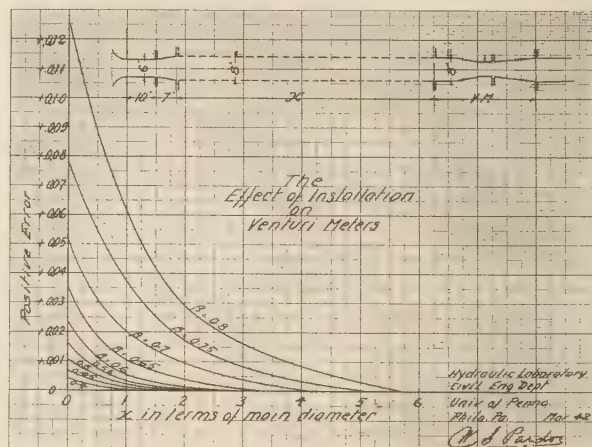 +.012
+.011
+.010
+.009
+.008
+.007
+.006
+.005
+.04
+.003
+.002
+.001
0
Positive Error
6"
8"
8"
10" 7"
x
V.M.
The
Effect of Installation
on
Venturi Meters
β=0.8
β=0.75
β=0.7
β=0.65
β=0.6
0 1 2 3 4 5 6
x in terms of main diameter
Hydraulic Laboratory
Civil Eng Dept
Univ of Penna.
Phila. Pa. Mar 42
W S Pardoe